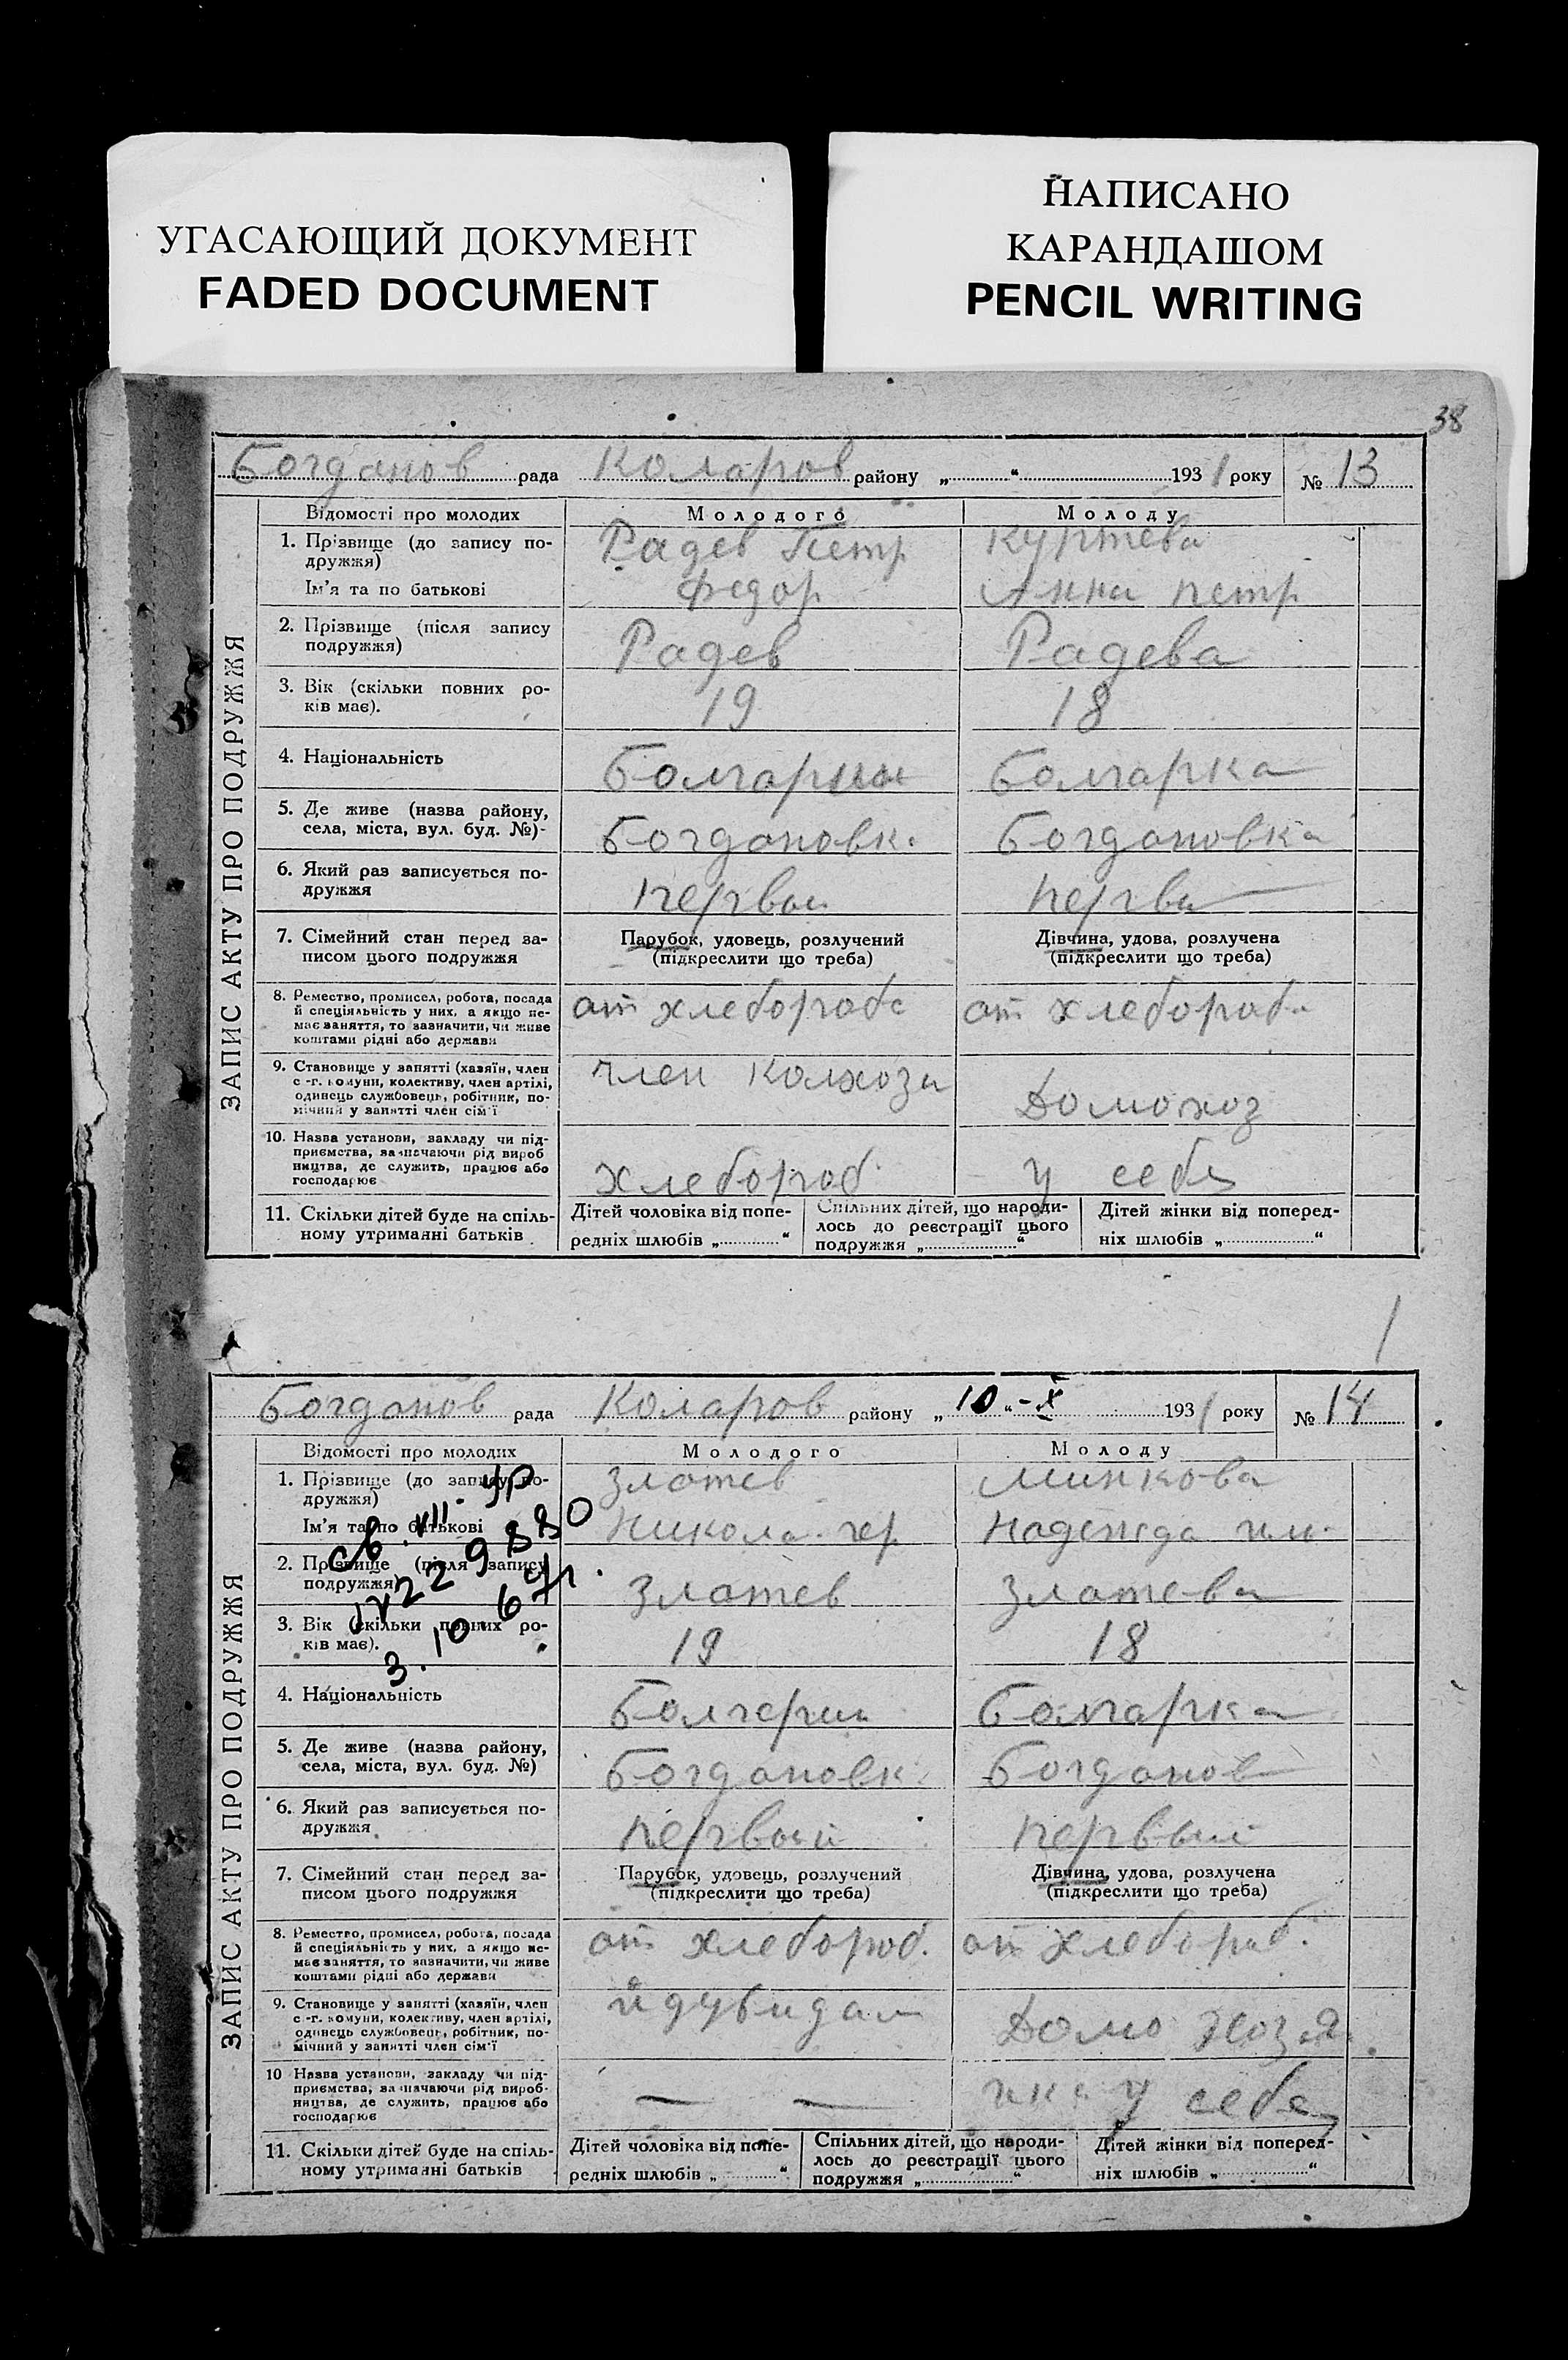 УГАСАЮЩИЙ ДОКУМЕНТ
FADED DOCUMENT
НАПИСАНО
КАРАНДАШОМ
PENCIL WRITING
38
Богданов рада Коларов району „ “ 1931 року № 13
ЗАПИС АКТУ ПРО ПОДРУЖЖЯ
Відомості про молодих Молодого Молоду
1. Прізвище (до запису по-
дружжя) Радев Петр Куртева
Ім'я та по батькові Федор Анна петр
2. Прізвище (після запису
подружжя) Радев Радева
3. Вік (скільки повних ро-
ків має). 19 18
4. Національність Болгарин Болгарка
5. Де живе (назва району,
села, міста, вул. буд. №)- Богдановк. Богдановка
6. Який раз записується по-
дружжя
7. Сімейний стан перед за-
писом цього подружжя
Парубок, удовець, розлучений
(підкреслити що треба)
Дівчина, удова, розлучена
(підкреслити що треба)
8. Ремество, промисел, робота, посада
й спеціяльність у них, а якщо не-
має заняття, то зазначити, чи живе
коштами рідні або держави
от хлебороба от хлебороба
9. Становище у занятті (хазяїн, член
с.-г. комуни, колективу, член артілі,
одинець службовець, робітник, по-
мічний у занятті член сім'ї
член колхоза Домохоз
10. Назва установи, закладу чи під-
приємства, зазначаючи рід вироб
ництва, де служить, працює або
господарює
хлебороб у себя
11. Скільки дітей буде на спіль-
ному утриманні батьків
Дітей чоловіка від попе-
редніх шлюбів „ “
Спільних дітей, що народи-
лось до реєстрації цього
подружжя „ “
Дітей жінки від поперед-
ніх шлюбів „ “
Богданов рада Коларов району „10“-X 1931 року № 14
ЗАПИС АКТУ ПРО ПОДРУЖЖЯ
Відомості про молодих Молодого Молоду
1. Прізвище (до запису по-
дружжя) Златев Минкова
Ім'я та по батькові Никола Надежда
2. Прізвище (після запису
подружжя) Златев Златева
3. Вік (скільки повних ро-
ків має). 19 18
св. VIII-УР
229880
3.10.69г.
4. Національність Болгарин Болгарка
5. Де живе (назва району,
села, міста, вул. буд. №) Богдановк. Богданов
6. Який раз записується по-
дружжя первый первый
7. Сімейний стан перед за-
писом цього подружжя
Парубок, удовець, розлучений
(підкреслити що треба)
Дівчина, удова, розлучена
(підкреслити що треба)
8. Ремество, промисел, робота, посада
й спеціяльність у них, а якщо не-
має заняття, то зазначити, чи живе
коштами рідні або держави
от хлебороб. от хлебороб.
9. Становище у занятті (хазяїн, член
с.-г. комуни, колективу, член артілі,
одинець службовець, робітник, по-
мічний у занятті член сім'ї
Домо хозя
10 Назва установи, закладу чи під-
приємства, зазначаючи рід вироб-
ництва, де служить, працює або
господарює
— — ика у себя
11. Скільки дітей буде на спіль-
ному утриманні батьків
Дітей чоловіка від попе-
редніх шлюбів „ “
Спільних дітей, що народи-
лось до реєстрації цього
подружжя „ “
Дітей жінки від поперед-
ніх шлюбів „ “